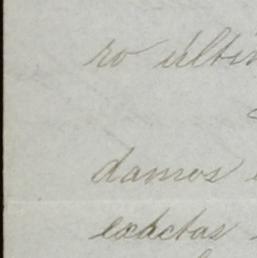 ro últi
damos
exactas